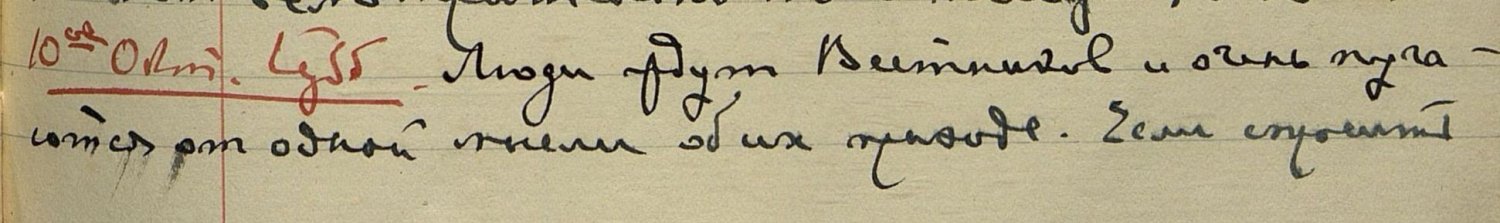 10ое Окт. Субб. Люди ждут Вестников и очень пуга-
ются от одной мысли об их приходе. Если спросить